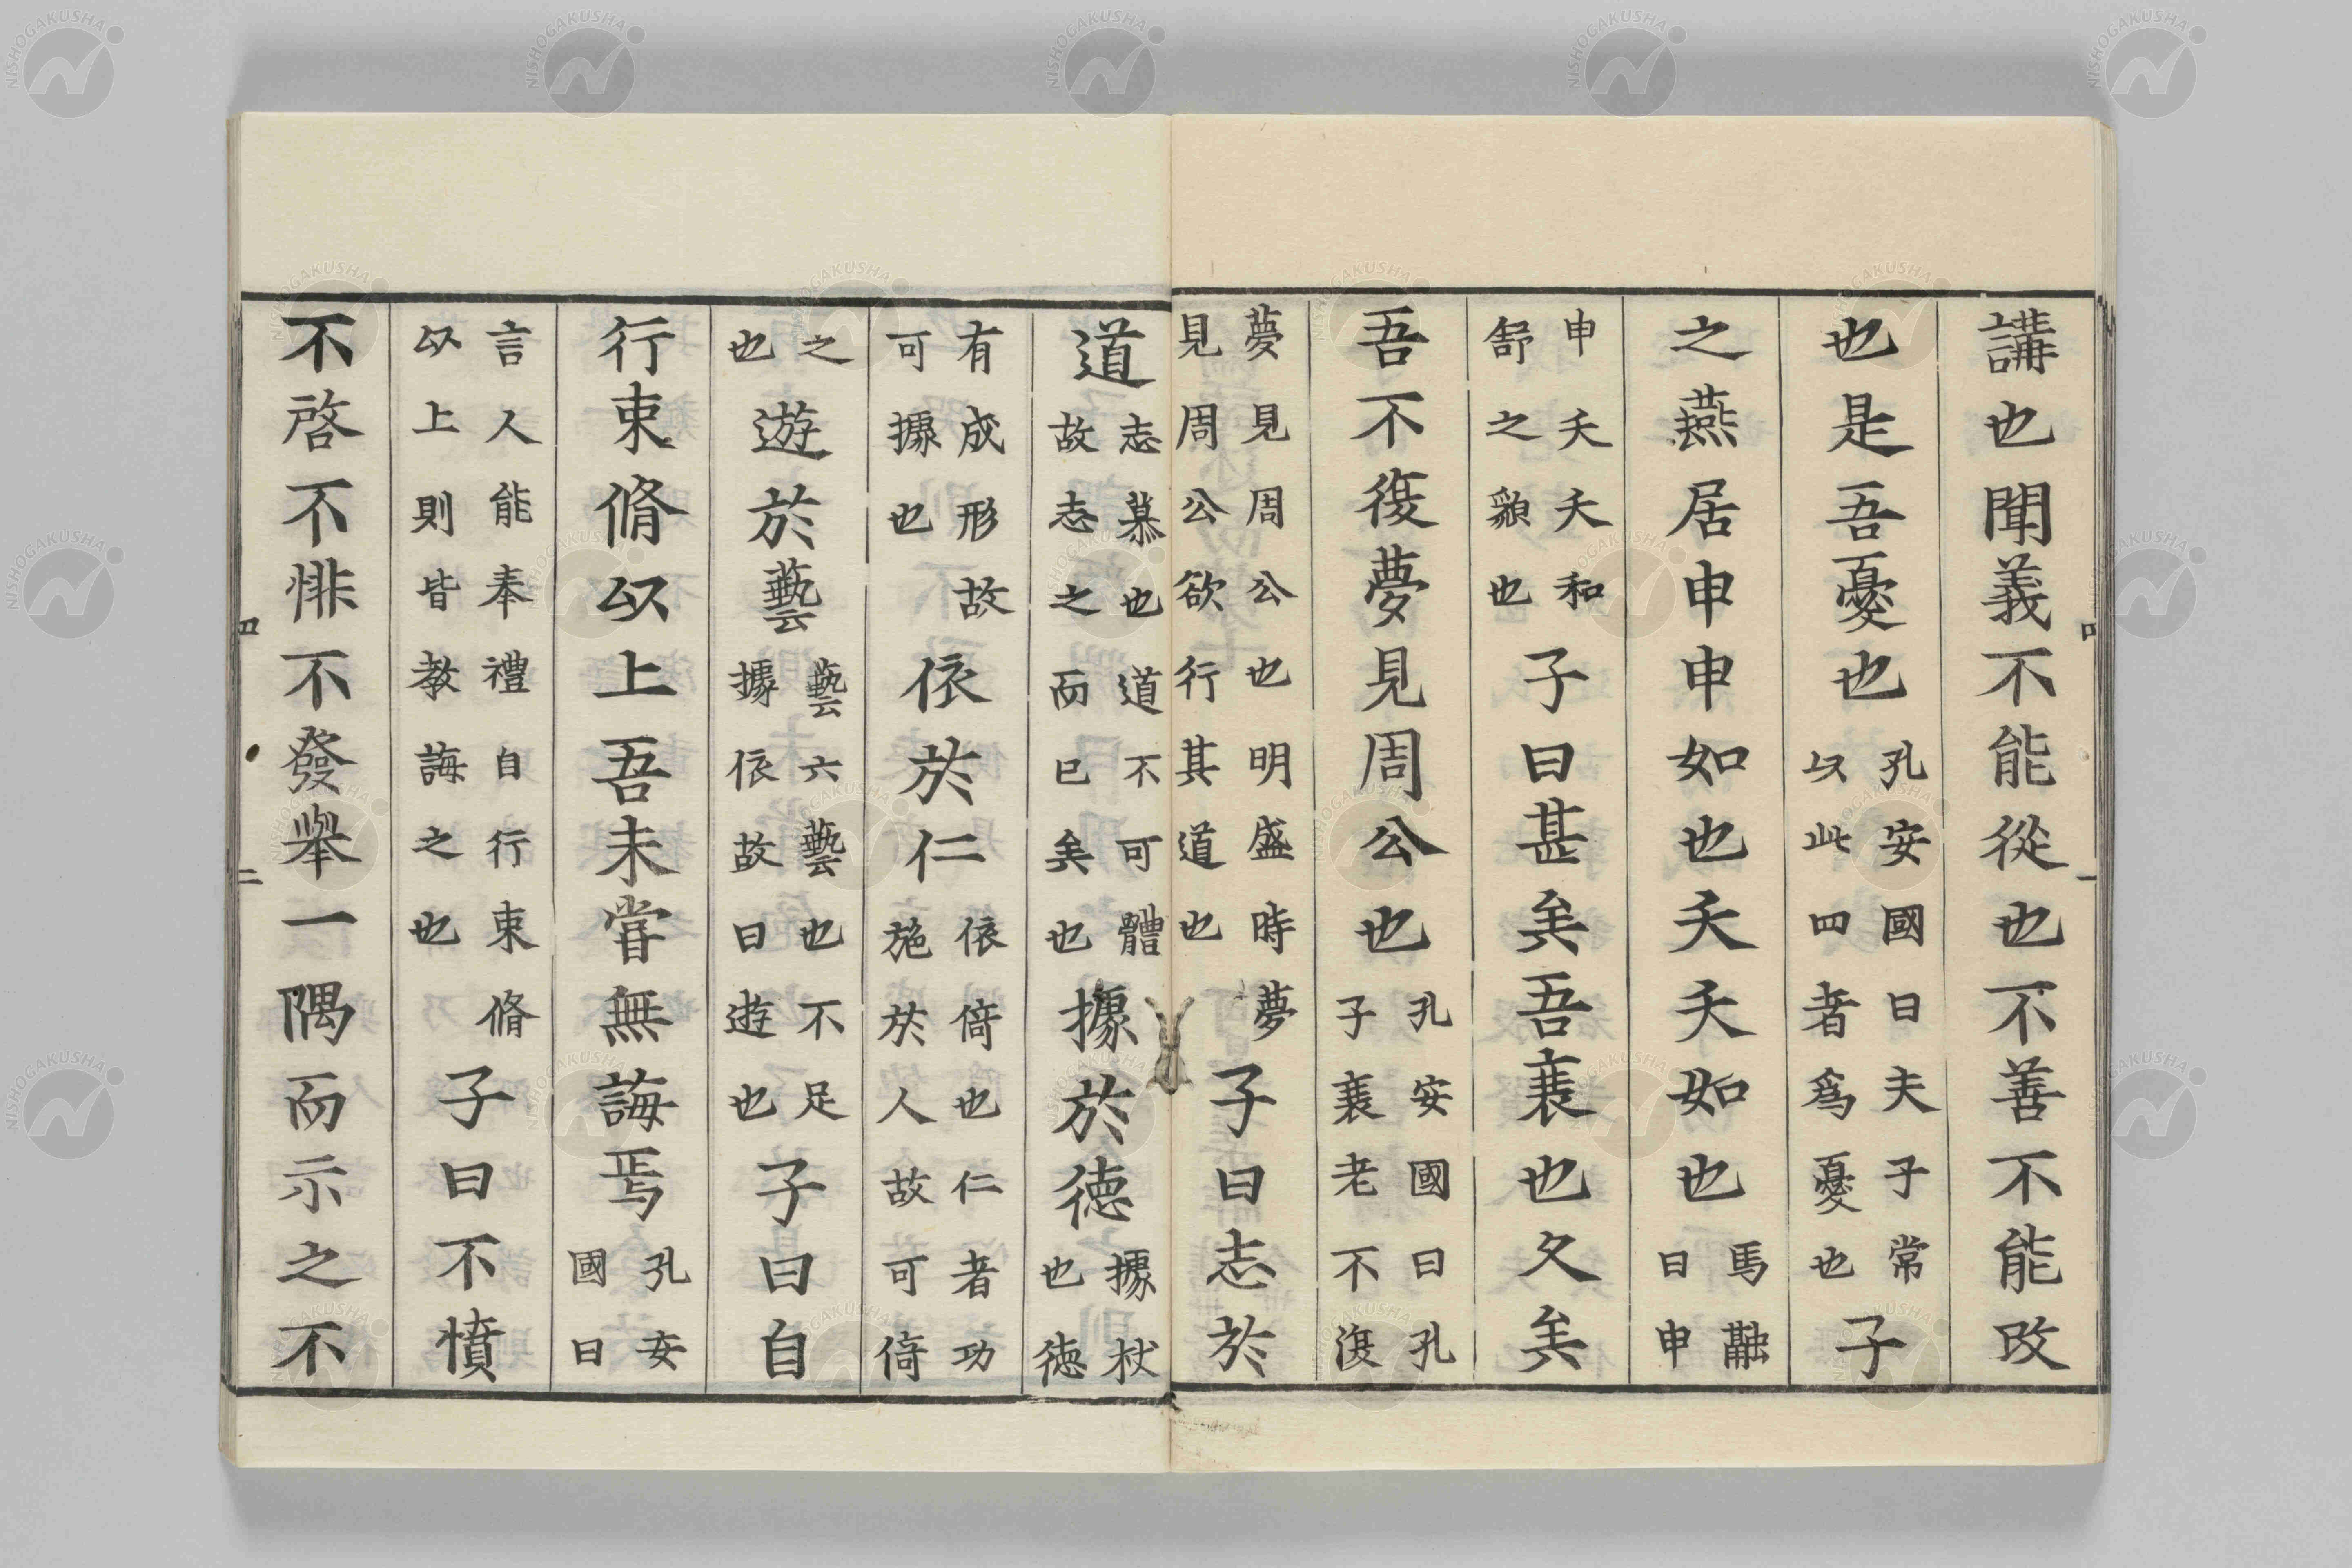 講也聞義不能從也不善不能改
也是吾憂也孔安國曰夫子常以此四者爲憂也子
之燕居申申如也夭夭如也馬融曰申
申夭夭和舒之貌也子曰甚矣吾衰也久矣
吾不復夢見周公也孔安國曰孔子衰老不復
夢見周公也明盛時夢見周公欲行其道也子曰志於
道志慕也道不可體故志之而已矣也據於德據杖也德
有成形故可據也依於仁依倚也仁者功施於人故可倚
之也遊於藝藝六藝也不足據依故曰遊也子曰自
行束脩以上吾未嘗無誨焉孔安國曰
言人能奉禮自行束脩以上則皆教誨之也子曰不憤
不啓不悱不發舉一隅而示之不
四 二
NISHOGAKUSHA